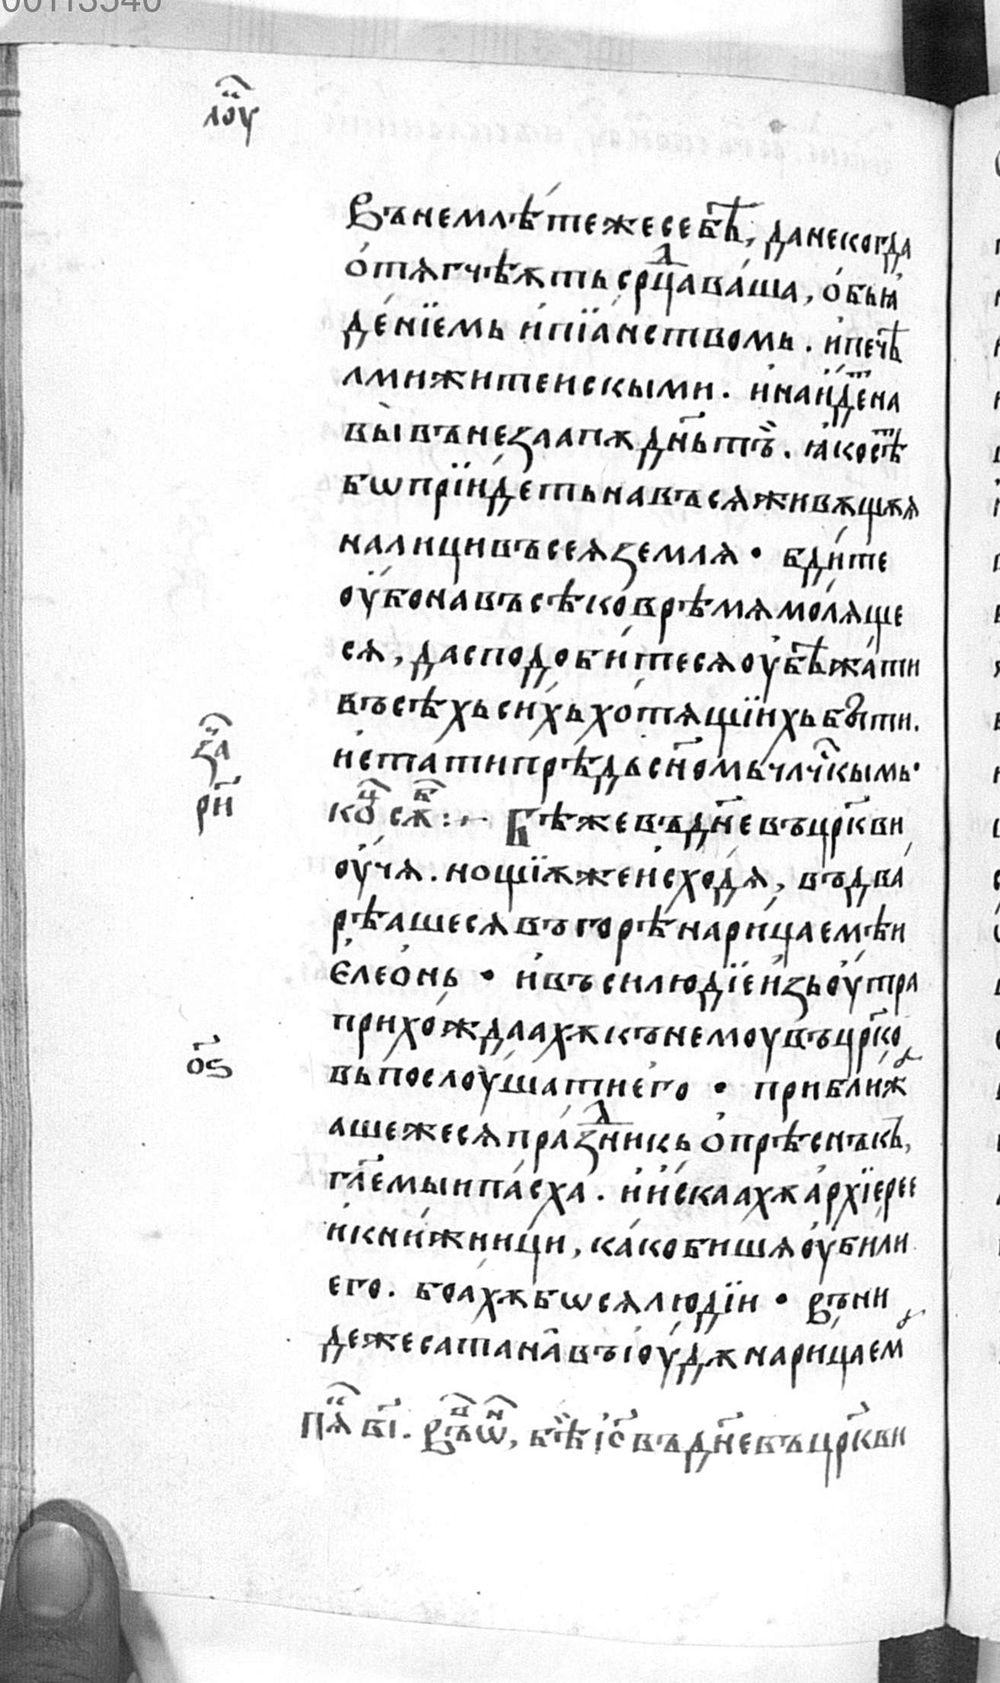 00113540
лоу҃
Вънемлѣтежесебѣ, данекогда
ѻ҆тѧгчѣѫтьср҃дцаваша, ѻ҆быꙗ
де́нїемь и҆пїа́нствомь. и҆печѣ
лмижитеискыми. и҆наи́детⷮна
вы̀вънезаапѫ дн҃ьтъ. ꙗ҆косѣⷮ
бѡпрїи́детьнавъсѧживѫщѫѧ
налицивъсеѧземлѧ • бди́те
оу҆бонавъсѣковрѣмѧмолѧще
сѧ, дасподоби́тесѧоу҆бѣжати
въсѣхьси́хьхотѧщїихьбꙑти.
и҆статипрѣдьсн҃омьчл҃чⷭкымь•
за҃
ри҃
коⷰ҇сѫⷠ҇:~ Бѣжевъдн҃евъцр҃кви
оу҆чѧ. нощїѫжеи҆сходѧ, въдва
рѣашесѧвъгорѣнарица́емѣи
Е҆леѻ́нь • и҆въсилюдїеи҆зьоу҆тра
прихождаахѫкънемоувъцр҃ко
ѻ҃ѕ
вьпослоушатиего • приближꙋ
ашежесѧпраздⷣникь ѻ҆прѣснѣкь,
гл҃емыипасха. и҆и҆скаахѫа҆рхїерее
и҆книжници, какобишѧоу҆били
его. боа́хѫбѡсѧлюдїи • Въни
дежесатана̀въі҆оу́дѫнарицаемꙋ
пѧⷦ҇ в҃і. въⷬ҇ѡⷩ҇, бѣ̀і҆с҃въдн҃евъцр҃кви